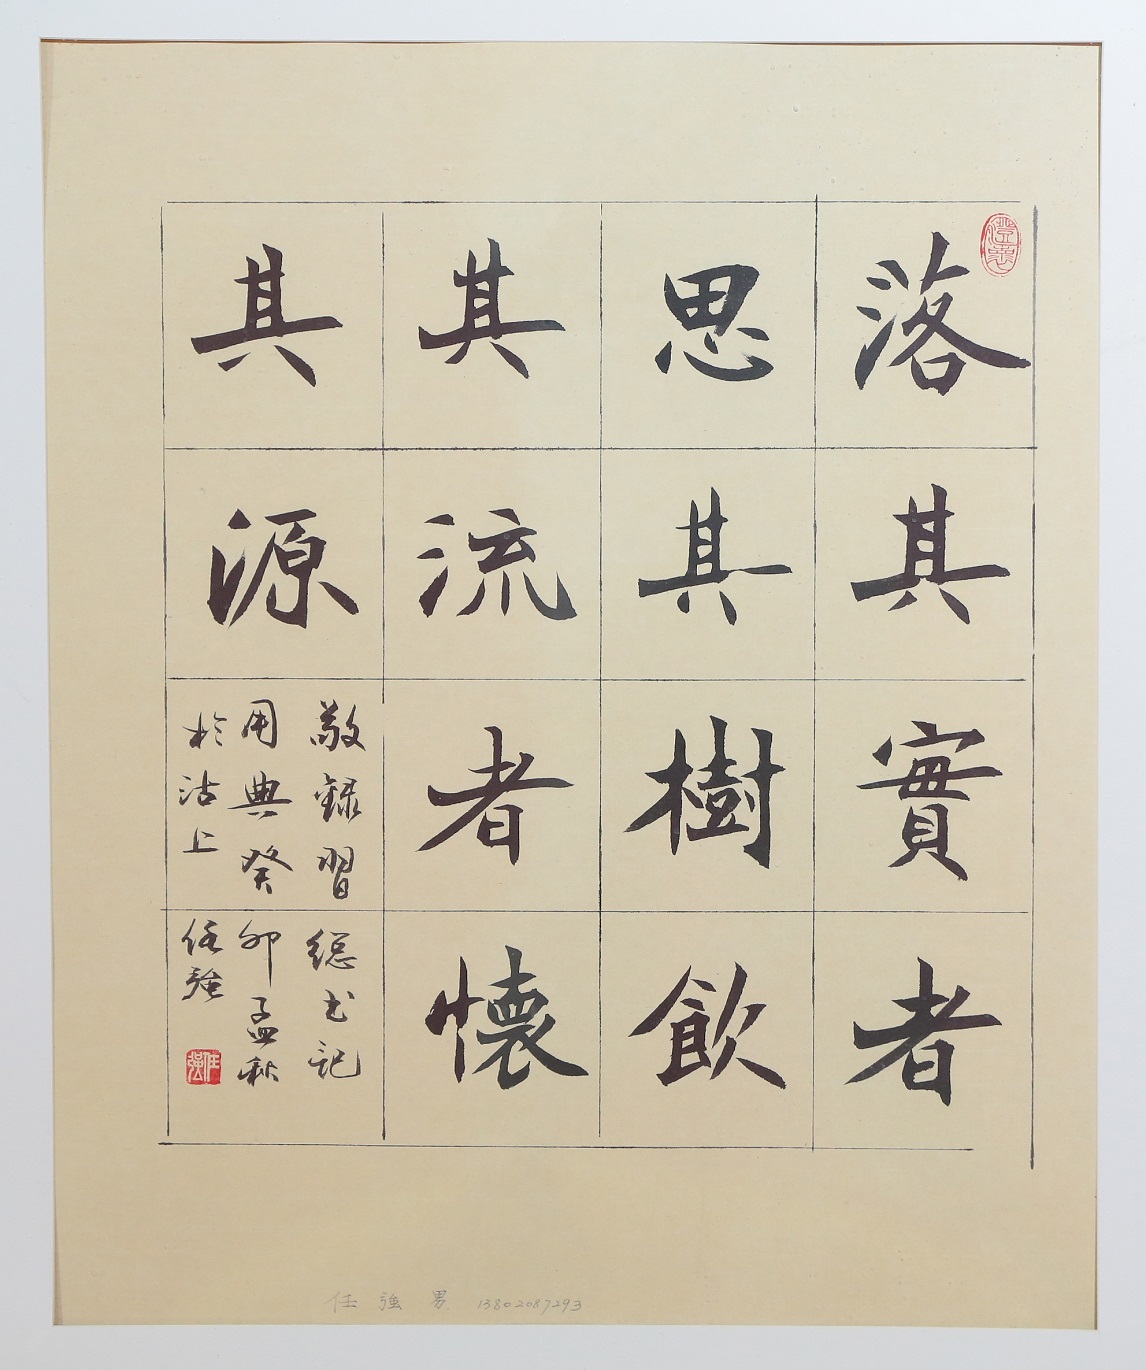 落其實者
思其樹飲
其流者懷
其源
敬錄習總书記
用典癸卯孟秋
於沽上任強
澄懷
任強
任強 男 13802087293